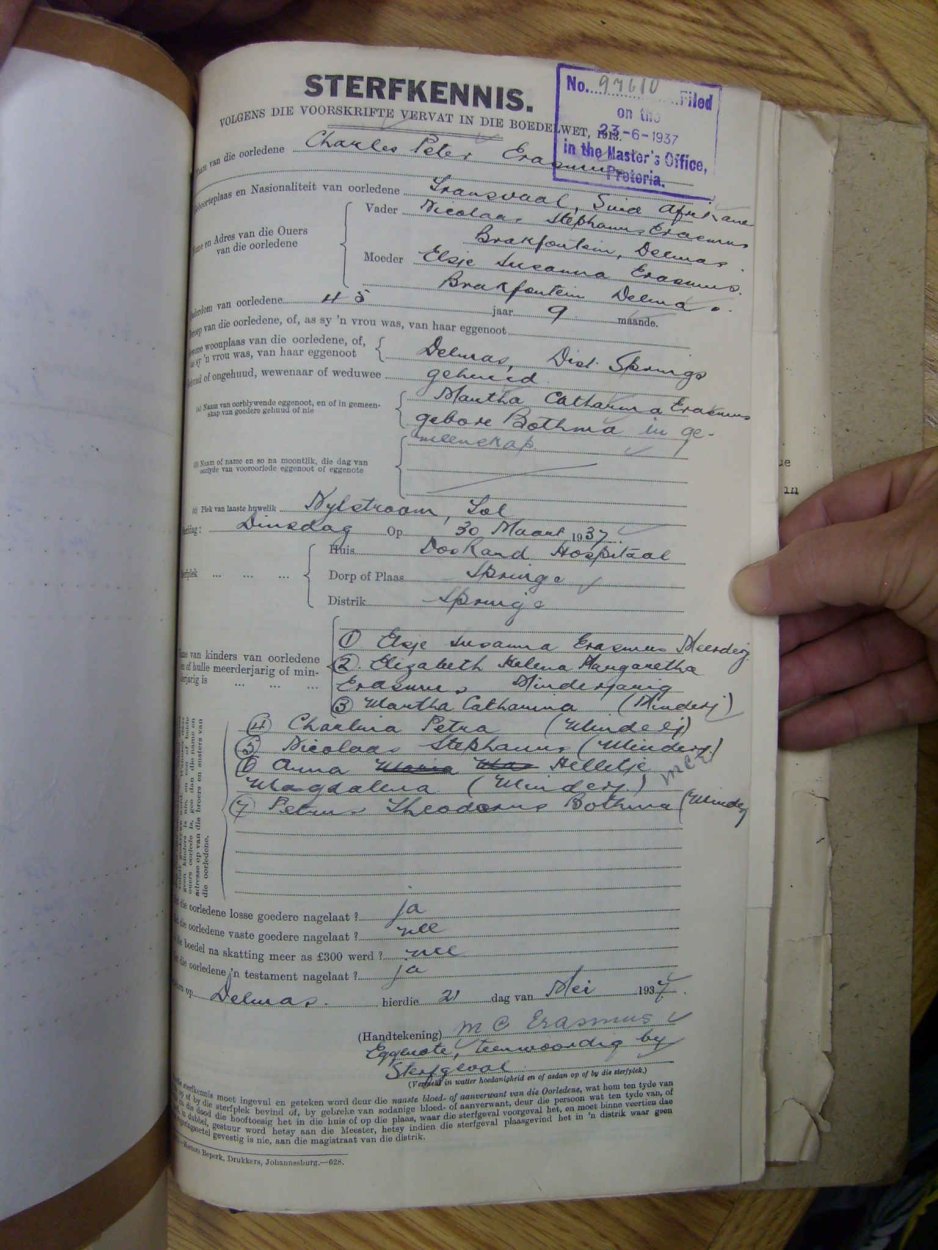 STERFKENNIS.
VOLGENS DIE VOORSKRIFTE VERVAT IN DIE BOEDELWET, 1913.
No. 97610 Filed
on the
23-6-1937
in the Master's Office,
Pretoria.
van die oorledene Charles Peter Erasmus
en Nasionaliteit van oorledene Transvaal, Suid Afrikane
en Adres van die Ouers
van die oorledene
Vader Nicolaas Stephanus Erasmus
Brakfontein, Delmas
Moeder Elsje Susanna Erasmus
Brakfontein Delmas.
van oorledene 45 jaar 9 maande.
van die oorledene, of, as sy 'n vrou was, van haar eggenoot
woonplaas van die oorledene, of,
as sy 'n vrou was, van haar eggenoot
Delmas, Dist. Springs
of ongehuud, wewenaar of weduwee gehuud
(a) Naam van oorblywende eggenoot, en of in gemeen-
skap van goedere gehuud of nie
Martha Catharina Erasmus
gebore Bothma in ge-
meenskap.
(b) Naam of name en so na moontlik, die dag van
van vooroorlede eggenoot of eggenote
(c) Plek van laaste huwelik Nylstroom,
Dinsdag Op 30 Maart 1937.
Huis Hospitaal
Dorp of Plaas Springs
Distrik Springs
van kinders van oorledene
of hulle meerderjarig of min-
derjarig is
① Elsje Susanna Erasmus Meerderj
② Elizabeth Helena Margaretha
Erasmus Minderjarig
③ Martha Catharina (Minderj)
④ Charlina Petra (Minderj)
⑤ Nicolaas Stephanus (Minderj)
⑥ Anna Helletje
Magdalena (Minderj) MCE
⑦ Petrus Theodorus Bothma (Minderj
die oorledene.
die oorledene losse goedere nagelaat? ja
die oorledene vaste goedere nagelaat? nee
boedel na skatting meer as £300 werd? nee
die oorledene 'n testament nagelaat? ja
op Delmas. hierdie 21 dag van Mei 1937.
(Handtekening) M C Erasmus
Eggenote, teenwoordig by
Sterfgeval
(Vermeld in watter hoedanigheid en of asdan op of by die sterfplek.)
sterfkennis moet ingevul en geteken word deur die naaste bloed- of aanverwant van die Oorledene, wat hom ten tyde van
of by die sterfplek bevind of, by gebreke van sodanige bloed- of aanverwant, deur die persoon wat ten tyde van, of
die dood die hooftoesig het in die huis of op die plaas, waar die sterfgeval voorgeval het, en moet binne veertien dae
dubbel, gestuur word hetsy aan die Meester, hetsy indien die sterfgeval plaasgevind het in 'n distrik waar geen
gevestig is nie, aan die magistraat van die distrik.
Beperk, Drukkers, Johannesburg.—628.